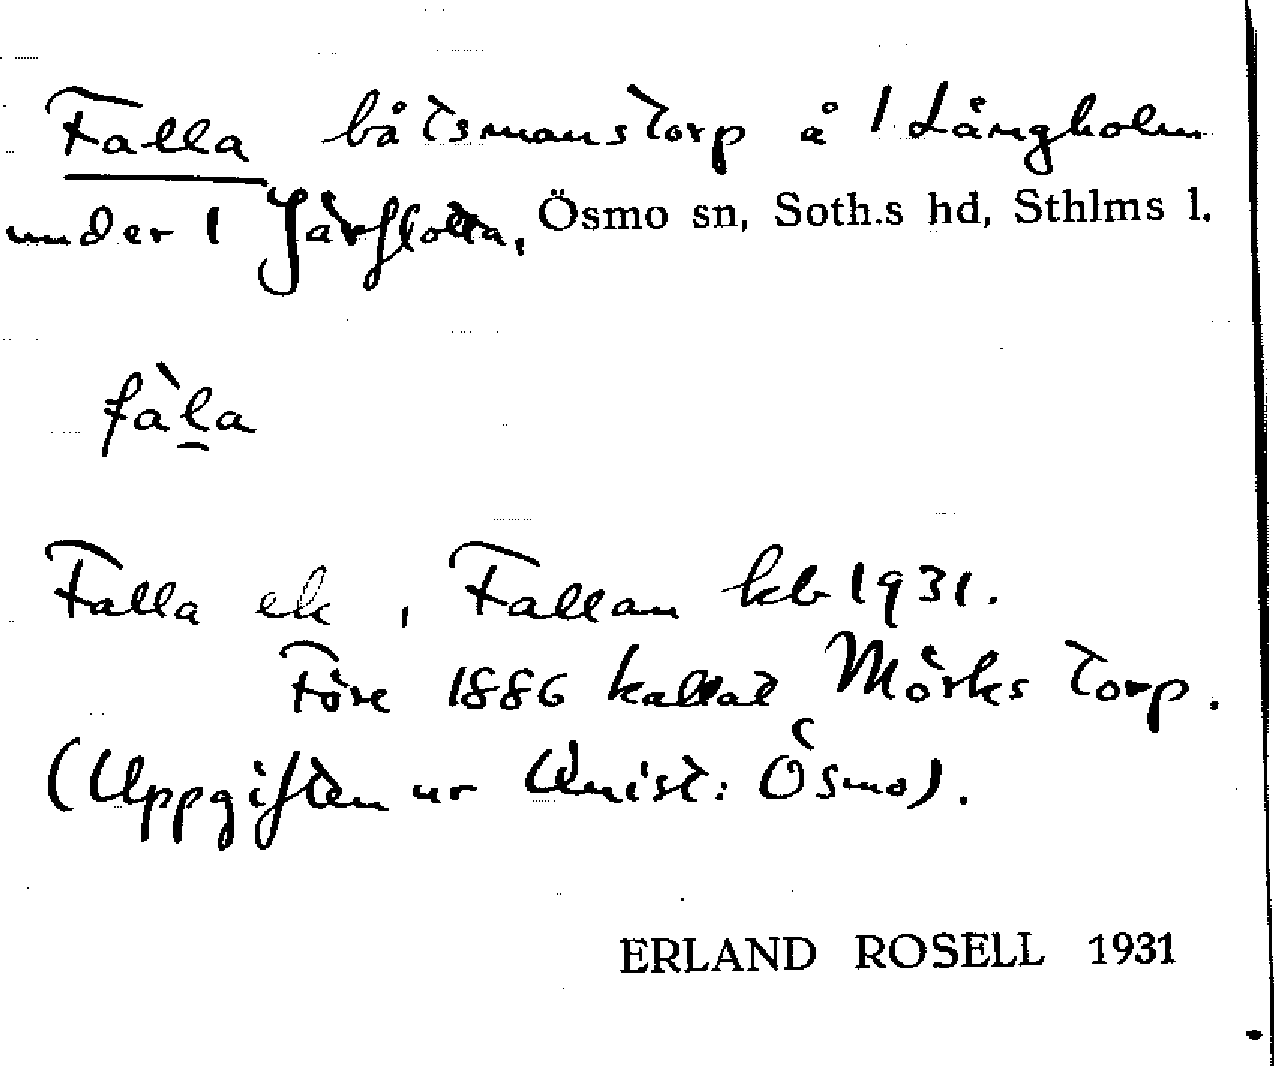 Falla båtsmanstorp å 1 Långholm
under 1 Järflotta, Ösmo sn, Soth.s hd, Sthlms l.
fàl̠a
Falla ek, Fallan kb 1931.
Före 1886 kallat Mörks torp.
(Uppgiften ur Qnist: Ösmo).
ERLAND ROSELL 1931